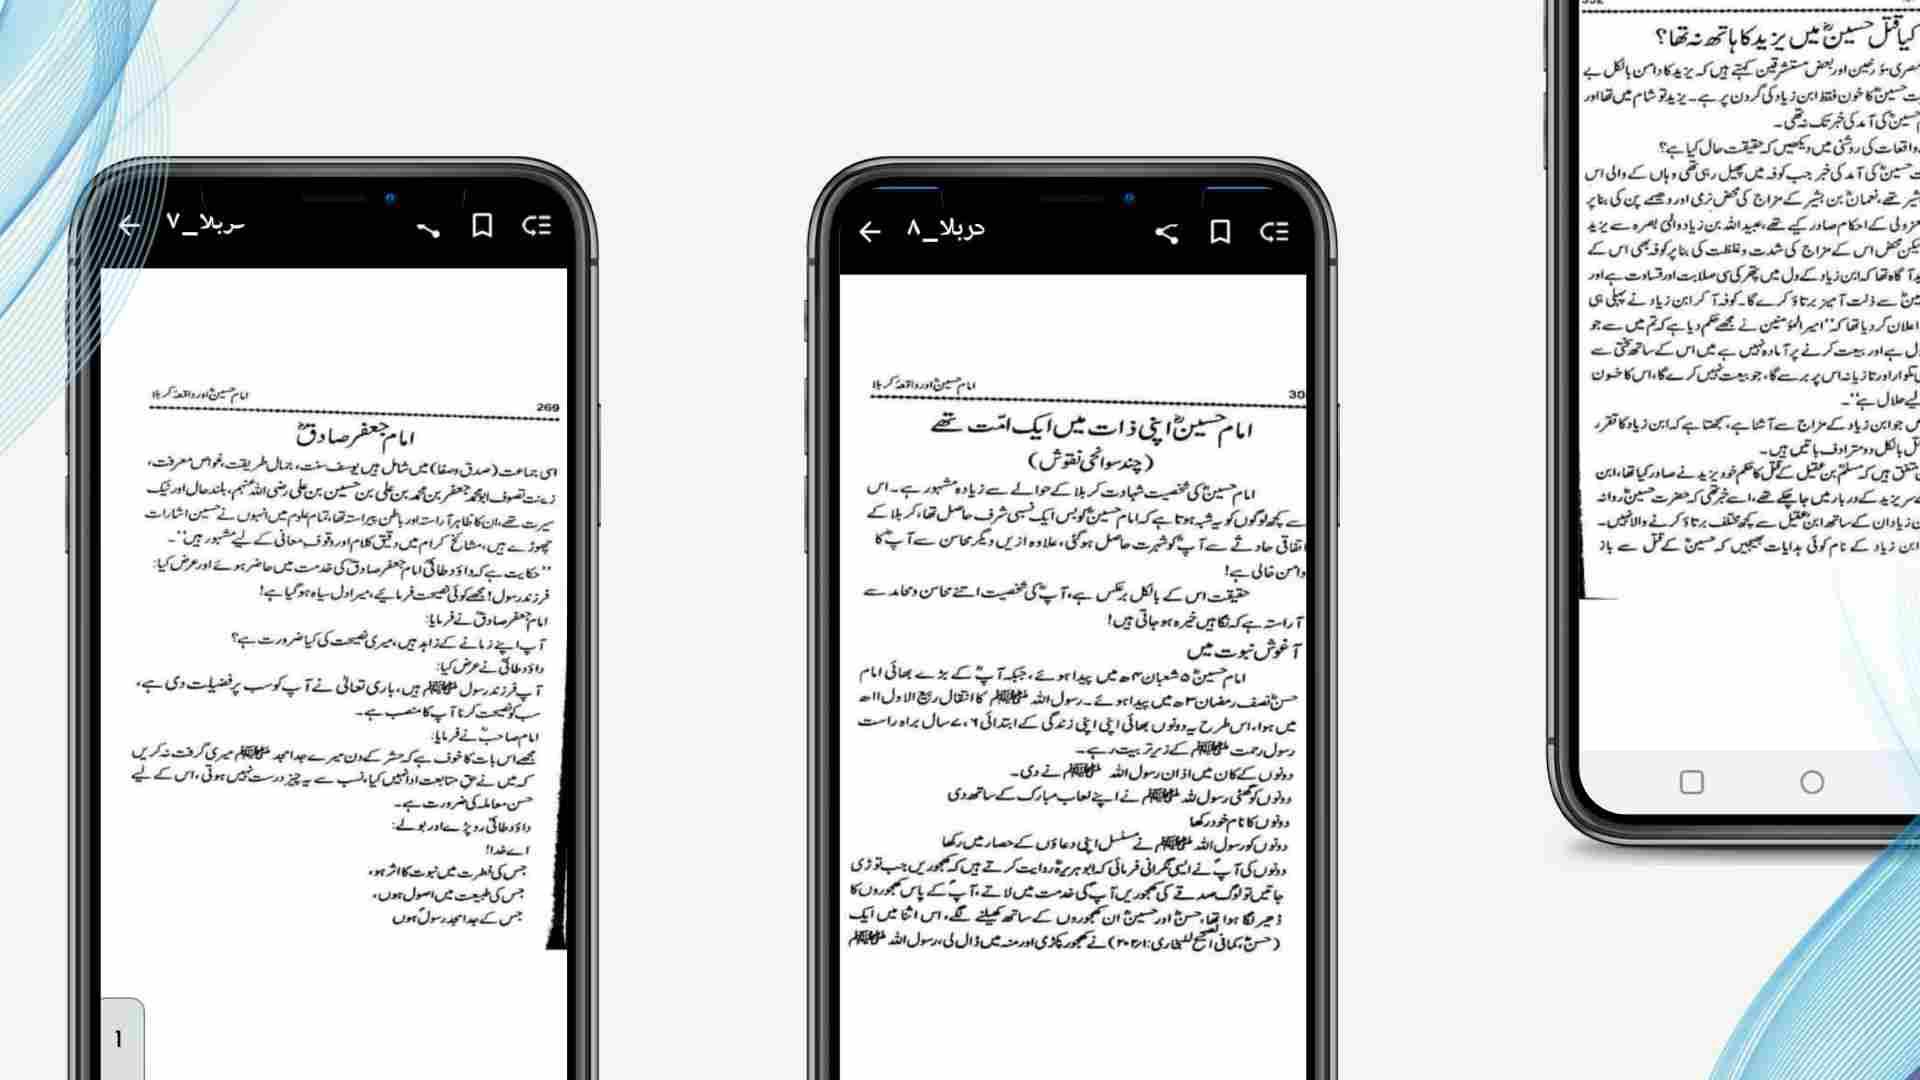 کربلا_۷
امام حسینؓ اور واقعۂ کربلا
269
امام جعفر صادقؒ
اسی جماعت (صدق وصفا) میں شامل ہیں یوسف سنت، جمال طریقت، غواص معرفت،
زینت تصوف ابو محمد جعفر بن محمد بن علی بن حسین بن علی رضی اللہ عنہم، بلند حال اور نیک
سیرت تھے، ان کا ظاہر آراستہ اور باطن پیراستہ تھا، تمام علوم میں انہوں نے حسین اشارات
چھوڑے ہیں، مشائخ کرام میں دقیق کلام اور وقوف معانی کے لیے مشہور ہیں‘‘۔
’’حکایت ہے کہ داؤد طائیؒ امام جعفر صادقؒ کی خدمت میں حاضر ہوئے اور عرض کیا:
فرزند رسول! مجھے کوئی نصیحت فرمائیے، میرا دل سیاہ ہوگیا ہے!
امام جعفر صادقؒ نے فرمایا:
آپ اپنے زمانے کے زاہد ہیں، میری نصیحت کی کیا ضرورت ہے؟
داؤد طائیؒ نے عرض کیا:
آپ فرزند رسول ﷺ ہیں، باری تعالیٰ نے آپ کو سب پر فضیلت دی ہے،
سب کو نصیحت کرنا آپ کا منصب ہے۔
امام صاحبؒ نے فرمایا:
مجھے اس بات کا خوف ہے کہ حشر کے دن میرے جد امجد ﷺ میری گرفت نہ کریں
کہ میں نے حق متابعت ادا نہیں کیا، نسب سے یہ چیز درست نہیں ہوتی، اس کے لیے
حسن معاملہ کی ضرورت ہے۔
داؤد طائیؒ رو پڑے اور بولے:
اے خدا!
جس کی فطرت میں نبوت کا اثر ہو،
جس کی طبیعت میں اصول ہوں،
جس کے جد امجد رسولؐ ہوں
1
کربلا_۸
امام حسینؓ اور واقعۂ کربلا
30
امام حسینؓ اپنی ذات میں ایک امّت تھے
(چند سوانحی نقوش)
امام حسینؓ کی شخصیت شہادت کربلا کے حوالے سے زیادہ مشہور ہے۔ اس
سے کچھ لوگوں کو یہ شبہ ہوتا ہے کہ امام حسینؓ کو بس ایک نسبی شرف حاصل تھا، کربلا کے
اتفاقی حادثے سے آپؓ کو شہرت حاصل ہوگئی، علاوہ ازیں دیگر محاسن سے آپؓ کا
دامن خالی ہے!
حقیقت اس کے بالکل برعکس ہے، آپؓ کی شخصیت اتنے محاسن ومحامد سے
آراستہ ہے کہ نگاہیں خیرہ ہوجاتی ہیں!
آغوش نبوت میں
امام حسینؓ ۵ شعبان ۴ھ میں پیدا ہوئے، جبکہ آپؓ کے بڑے بھائی امام
حسنؓ نصف رمضان ۳ھ میں پیدا ہوئے۔ رسول اللہ ﷺ کا انتقال ربیع الاول ۱۱ھ
میں ہوا، اس طرح یہ دونوں بھائی اپنی اپنی زندگی کے ابتدائی ۶، ۷ سال براہ راست
رسول رحمت ﷺ کے زیر تربیت رہے۔
دونوں کے کان میں اذان رسول اللہ ﷺ نے دی۔
دونوں کو گھٹی رسول اللہ ﷺ نے اپنے لعاب مبارک کے ساتھ دی
دونوں کا نام خود رکھا
دونوں کو رسول اللہ ﷺ نے مسلسل اپنی دعاؤں کے حصار میں رکھا
دونوں کی آپؐ نے ایسی نگرانی فرمائی کہ ابوہریرہؓ روایت کرتے ہیں کہ کھجوریں جب توڑی
جاتیں تو لوگ صدقے کی کھجوریں آپؐ کی خدمت میں لاتے، آپؐ کے پاس کھجوروں کا
ڈھیر لگا ہوا تھا، حسنؓ اور حسینؓ ان کھجوروں کے ساتھ کھیلنے لگے، اس اثنا میں ایک
(حسنؓ، کمافی الصحیح للبخاری: ۲۰۲/۱) نے کھجور پکڑی اور منہ میں ڈال لی، رسول اللہ ﷺ
کیا قتل حسینؓ میں یزید کا ہاتھ نہ تھا؟
مصری مؤرخین اور بعض مستشرقین کہتے ہیں کہ یزید کا دامن بالکل بے
حسینؓ کا خون فقط ابن زیاد کی گردن پر ہے۔ یزید تو شام میں تھا اور
حسینؓ کی آمد کی خبر تک نہ تھی۔
واقعات کی روشنی میں دیکھیں کہ حقیقت حال کیا ہے؟
حسینؓ کی آمد کی خبر جب کوفہ میں پھیل رہی تھی وہاں کے والی اس
تھے، نعمانؓ بن بشیر کے مزاج کی محض نرمی اور دھیمے پن کی بنا پر
معزولی کے احکام صادر کیے تھے، عبید اللہ بن زیاد والیٔ بصرہ سے یزید
لیکن محض اس کے مزاج کی شدت وغلظت کی بنا پر کوفہ بھی اس کے
آگاہ تھا کہ ابن زیاد کے دل میں پتھر کی سی صلابت اور قساوت ہے اور
سے ذلت آمیز برتاؤ کرے گا۔ کوفہ آکر ابن زیاد نے پہلی ہی
اعلان کردیا تھا کہ ’’امیر المؤمنین نے مجھے حکم دیا ہے کہ تم میں سے جو
ہے اور بیعت کرنے پر آمادہ نہیں ہے میں اس کے ساتھ سختی سے
تلوار اور تازیانہ اس پر برسے گا، جو بیعت نہیں کرے گا، اس کا خون
لیے حلال ہے‘‘۔
جو ابن زیاد کے مزاج سے آشنا ہے، سمجھتا ہے کہ ابن زیاد کا تقرر
بالکل دو مترادف باتیں ہیں۔
متفق ہیں کہ مسلمؓ بن عقیل کے قتل کا حکم خود یزید نے صادر کیا تھا، ابن
یزید کے دربار میں جاچکے تھے، اسے خبر تھی کہ حضرت حسینؓ روانہ
زیاد ان کے ساتھ ابن عقیل سے کچھ مختلف برتاؤ کرنے والا نہیں۔
ابن زیاد کے نام کوئی ہدایات بھیجیں کہ حسینؓ کے قتل سے باز